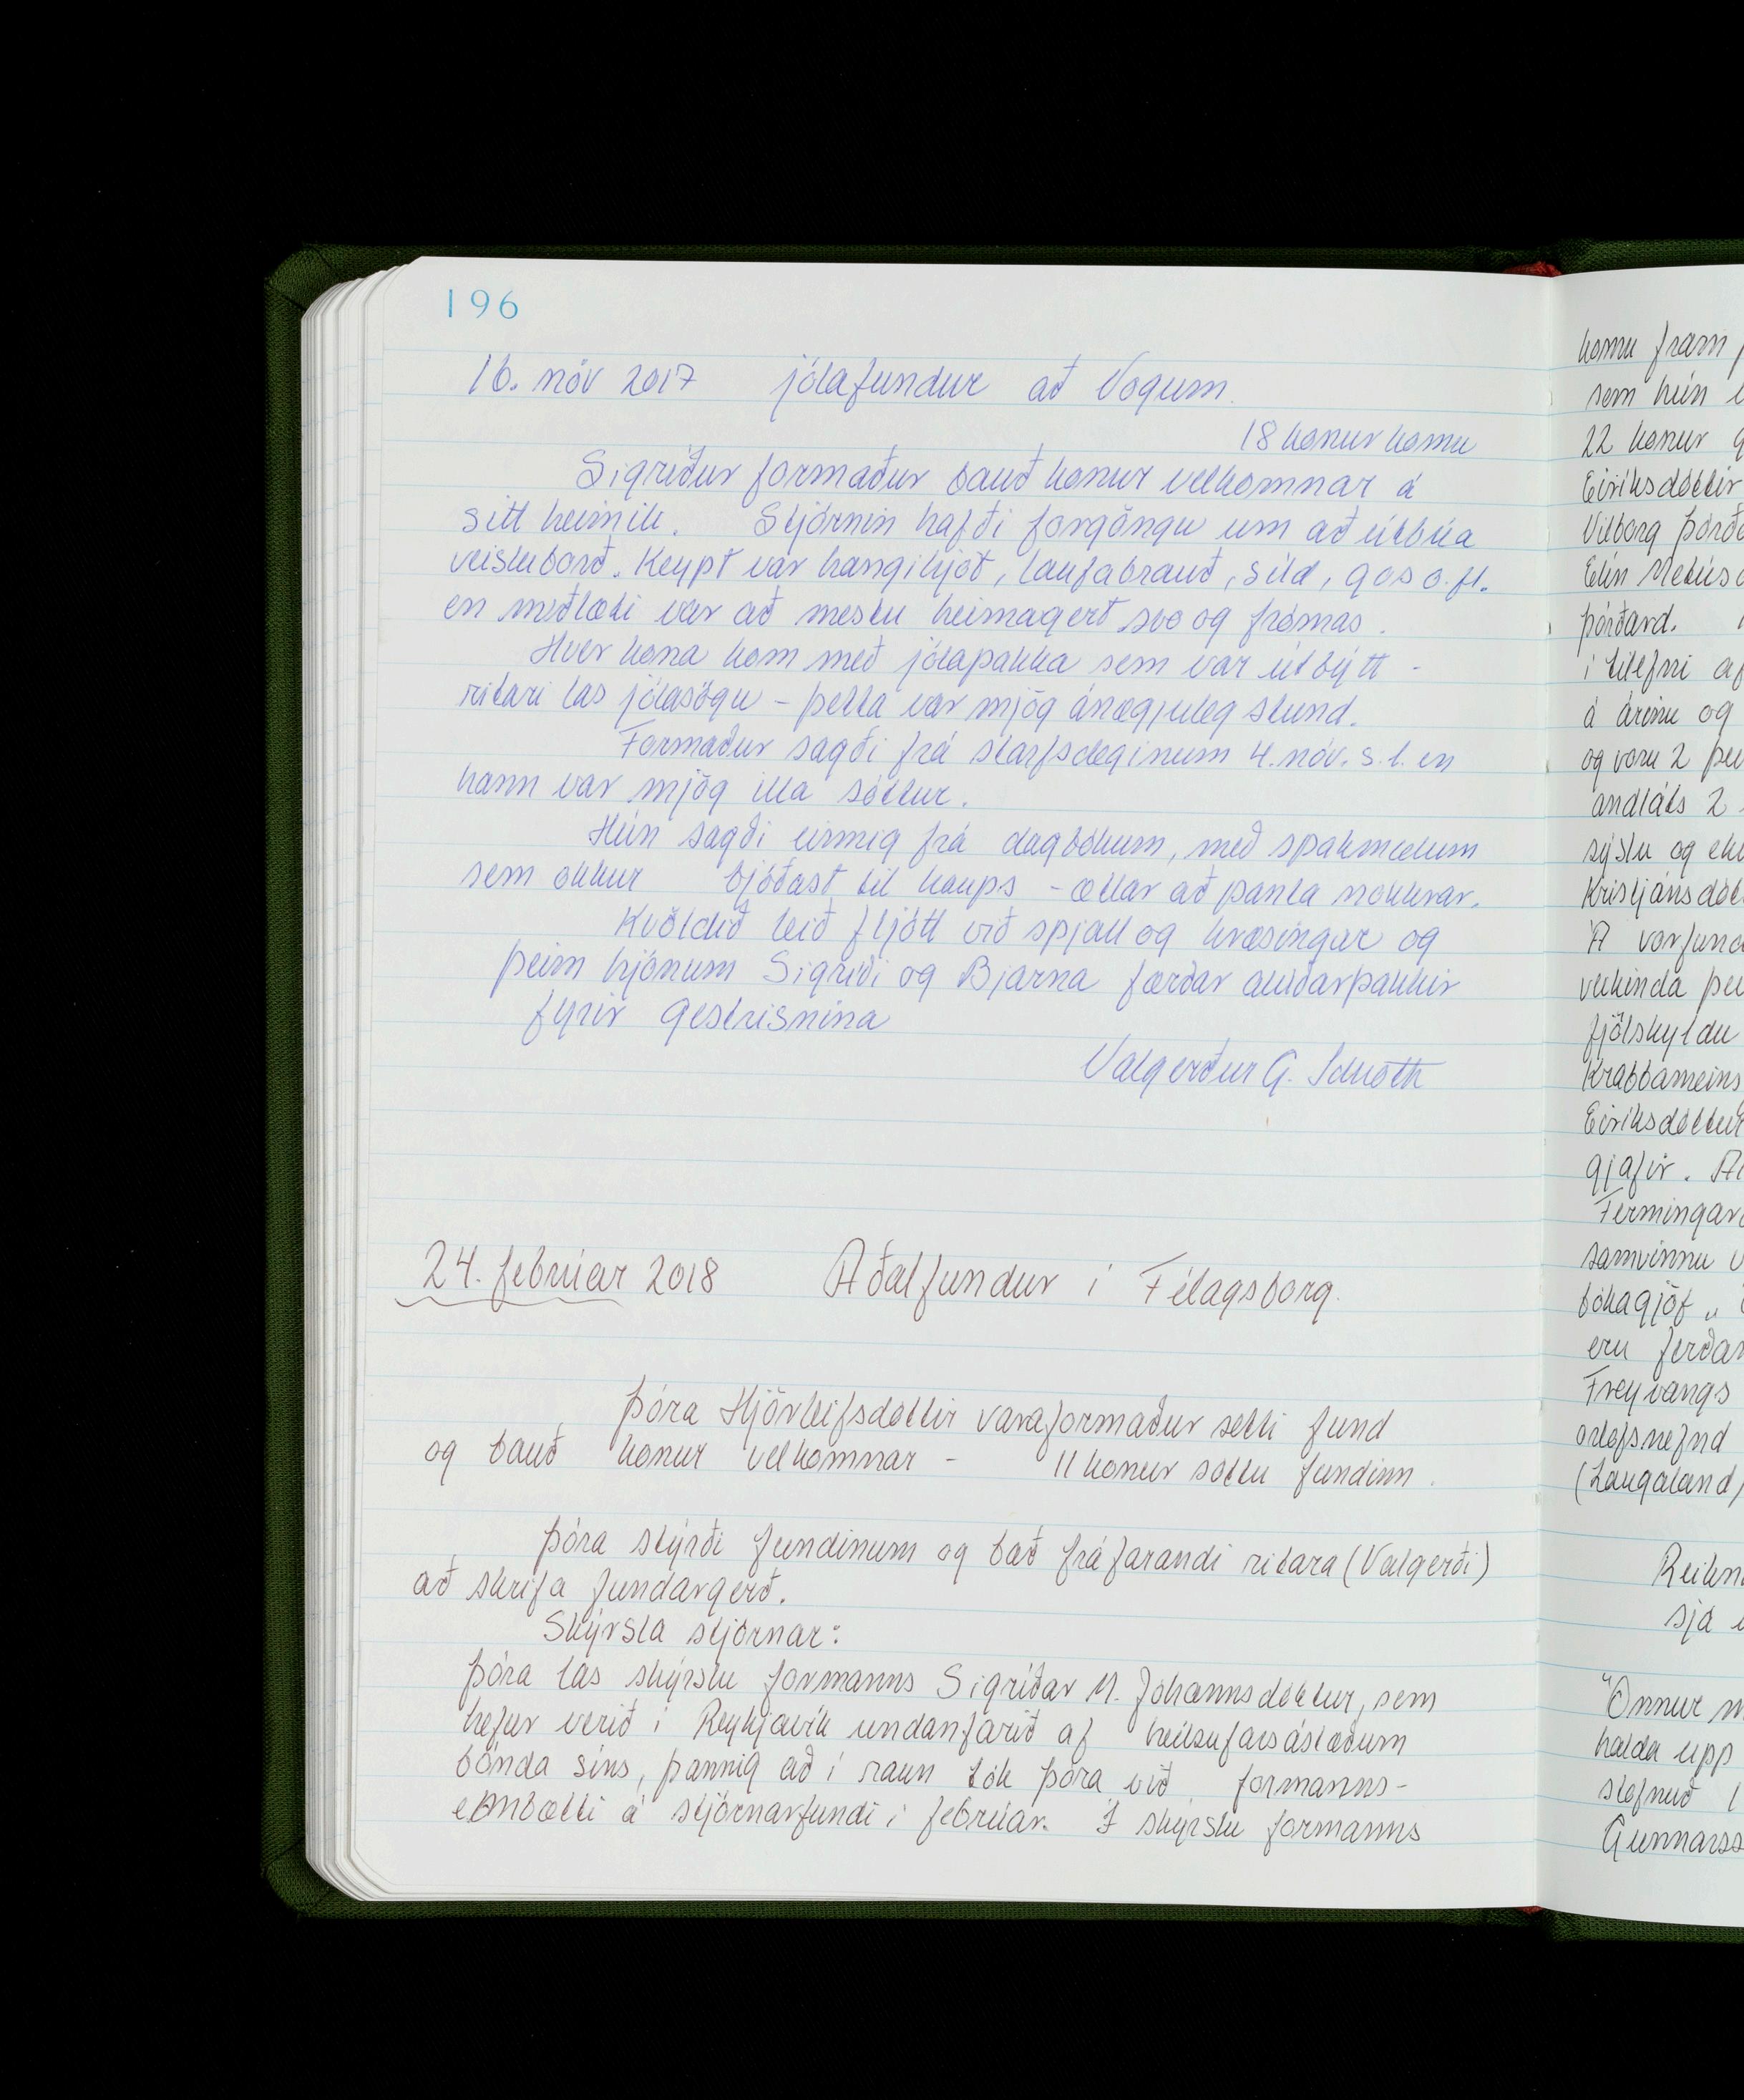 196
16. nóv 2017 jólafundur að Vogum.
18 konur komu
Sigríður formaður bauð konur velkomnar á
sitt heimili. Stjórnin hafði forgöngu um að útbúa
veisluborð. Keypt var hangikjöt, laufabrauð, síld, gos o.fl.
en meðlæti var að mestu heimagert svo og frómas.
Hver kona kom með jólapakka sem var útbýtt -
ritari las jólasögu - þetta var mjög ánægjuleg stund.
Formaður sagði frá starfsdeginum 4. nóv. s.l. en
hann var mjög illa sóttur.
Hún sagði einnig frá dagbókum, með spakmælum
sem okkur bjóðast til kaups - ætlar að panta nokkrar.
Kvöldið leið fljótt við spjall og kræsingar og
þeim hjónum Sigríði og Bjarna færðar alúðarþakkir
fyrir gestrisnina
Valgerður G. Schiöth
24. febrúar 2018 Aðalfundur í Félagsborg.
Þóra Hjörleifsdóttir varaformaður setti fund
og bauð konur velkomnar - 11 konur sóttu fundinn.
Þóra stýrði fundinum og bað fráfarandi ritara (Valgerði)
að skrifa fundargerð.
Skýrsla stjórnar:
Þóra las skýrslu formanns Sigríðar M. Jóhannsdóttur, sem
hefur verið í Reykjavík undanfarið af heilsufarsástæðum
bónda síns, þannig að í raun tók Þóra við formanns-
embætti á stjórnarfundi í febrúar. Í skýrslu formanns
komu fram
sem hún
22 konur
Eiríksdóttir
Vilborg Þórða
Elín
Þórðard.
í tilefni af
á árinu og
og voru 2 þei
andláts 2
sýslu og
Kristjánsdót
Á varfund
veikinda þei
fjölskyldu
Krabbameins
Eiríksdóttur
gjafir.
Fermingar
samvinnu v
bókagjöf „
eru ferðar
Freyvangs
orlofsnefnd
(Laugaland,
Reikn
sjá
Önnur m
halda upp
stofnuð 1
Gunnarss